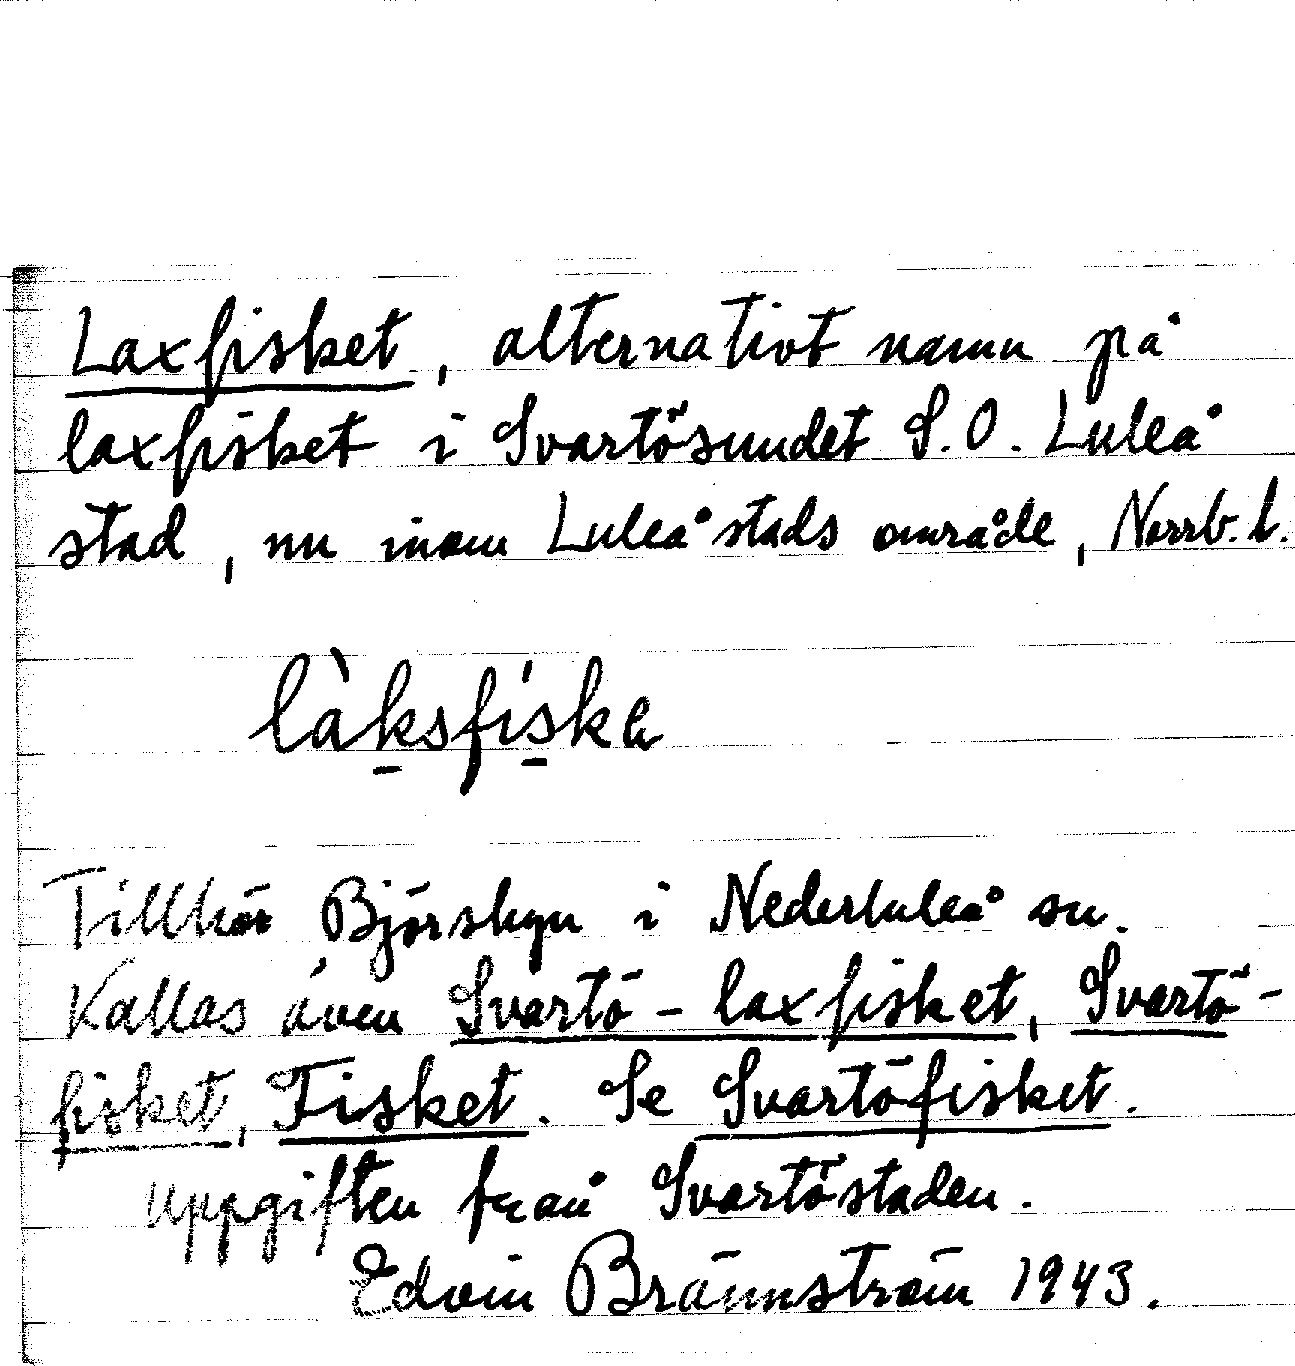 Laxfisket, alternativt namn på
laxfisket i Svartösundet S.O. Luleå
stad, nu inom Luleå stads område, Norrb. l.
làk̲sfís̲ka
Tillhör Björsbyn i Nederluleå sn.
Kallas även Svartö-laxfisket, Svartö-
fisket, Fisket. Se Svartöfisket.
Uppgiften från Svartöstaden.
Edvin Brännström 1943.